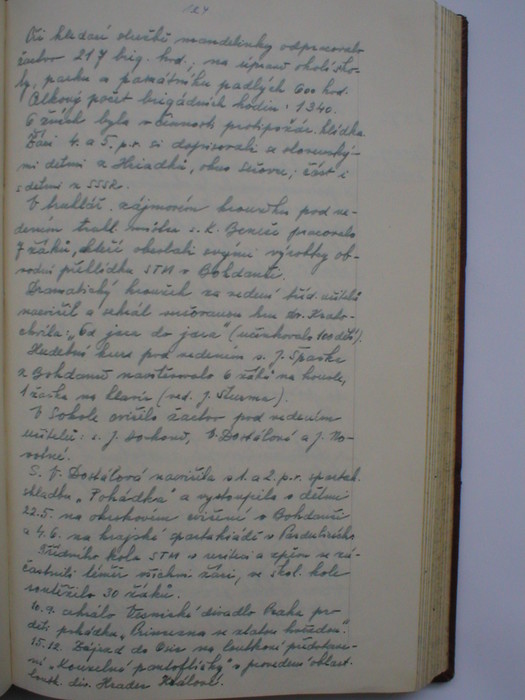 124
Při hledání ohnisků mandelinky odpracovalo
žactvo 217 brig. hod.; na úpravě okolí ško-
ly, parku a památníku padlých 600 hod.
Celkový počet brigádních hodin: 1340.
O žních byla v činnosti protipožár. hlídka.
Žáci 4. a 5. p.r. si dopisovali se slovenský-
mi dětmi z Hriadků, okres Sečovce; část i
s dětmi z SSSR.
V truhlář. zájmovém kroužku pod ve-
dením truhl. mistra s. K. Beneše pracovalo
7 žáků, kteří obeslali svými výrobky ob-
vodní přehlídku STM v Bohdanči.
Dramatický kroužek za vedení tříd. učitelů
nacvičil a sehrál veršovanou hru dr. Krato-
chvíla: „Od jara do jara" (účinkovalo 100 dětí).
Hudební kurs pod vedením s. J. Špačka
z Bohdanče navštěvovalo 6 žáků na housle,
1 žačka na klavír (ved. J. Šturma).
V Sokole cvičilo žactvo pod vedením
učitelů: s. J. V. Dostálová a J. No-
votné.
S. V. Dostálová nacvičila s 1. a 2. p.r. spartak.
skladbu „Pohádka" a vystoupila s dětmi
22.5. na okrskovém cvičení v Bohdanči
a 4.6. na krajské spartakiádě v Pardubicích.
Třídního kola STM v recitaci a zpěvu se zú-
častnili téměř všichni žáci, ve škol. kole
soutěžilo 30 žáků.
10.9. sehrálo Vesnické divadlo Praha pro
děti pohádku „Princezna se zlatou hvězdou."
15.12. Zájezd do na loutkové představe-
ní „Kouzelné pantoflíčky" v provedení oblast.
loutk. div. Hradec Králové.